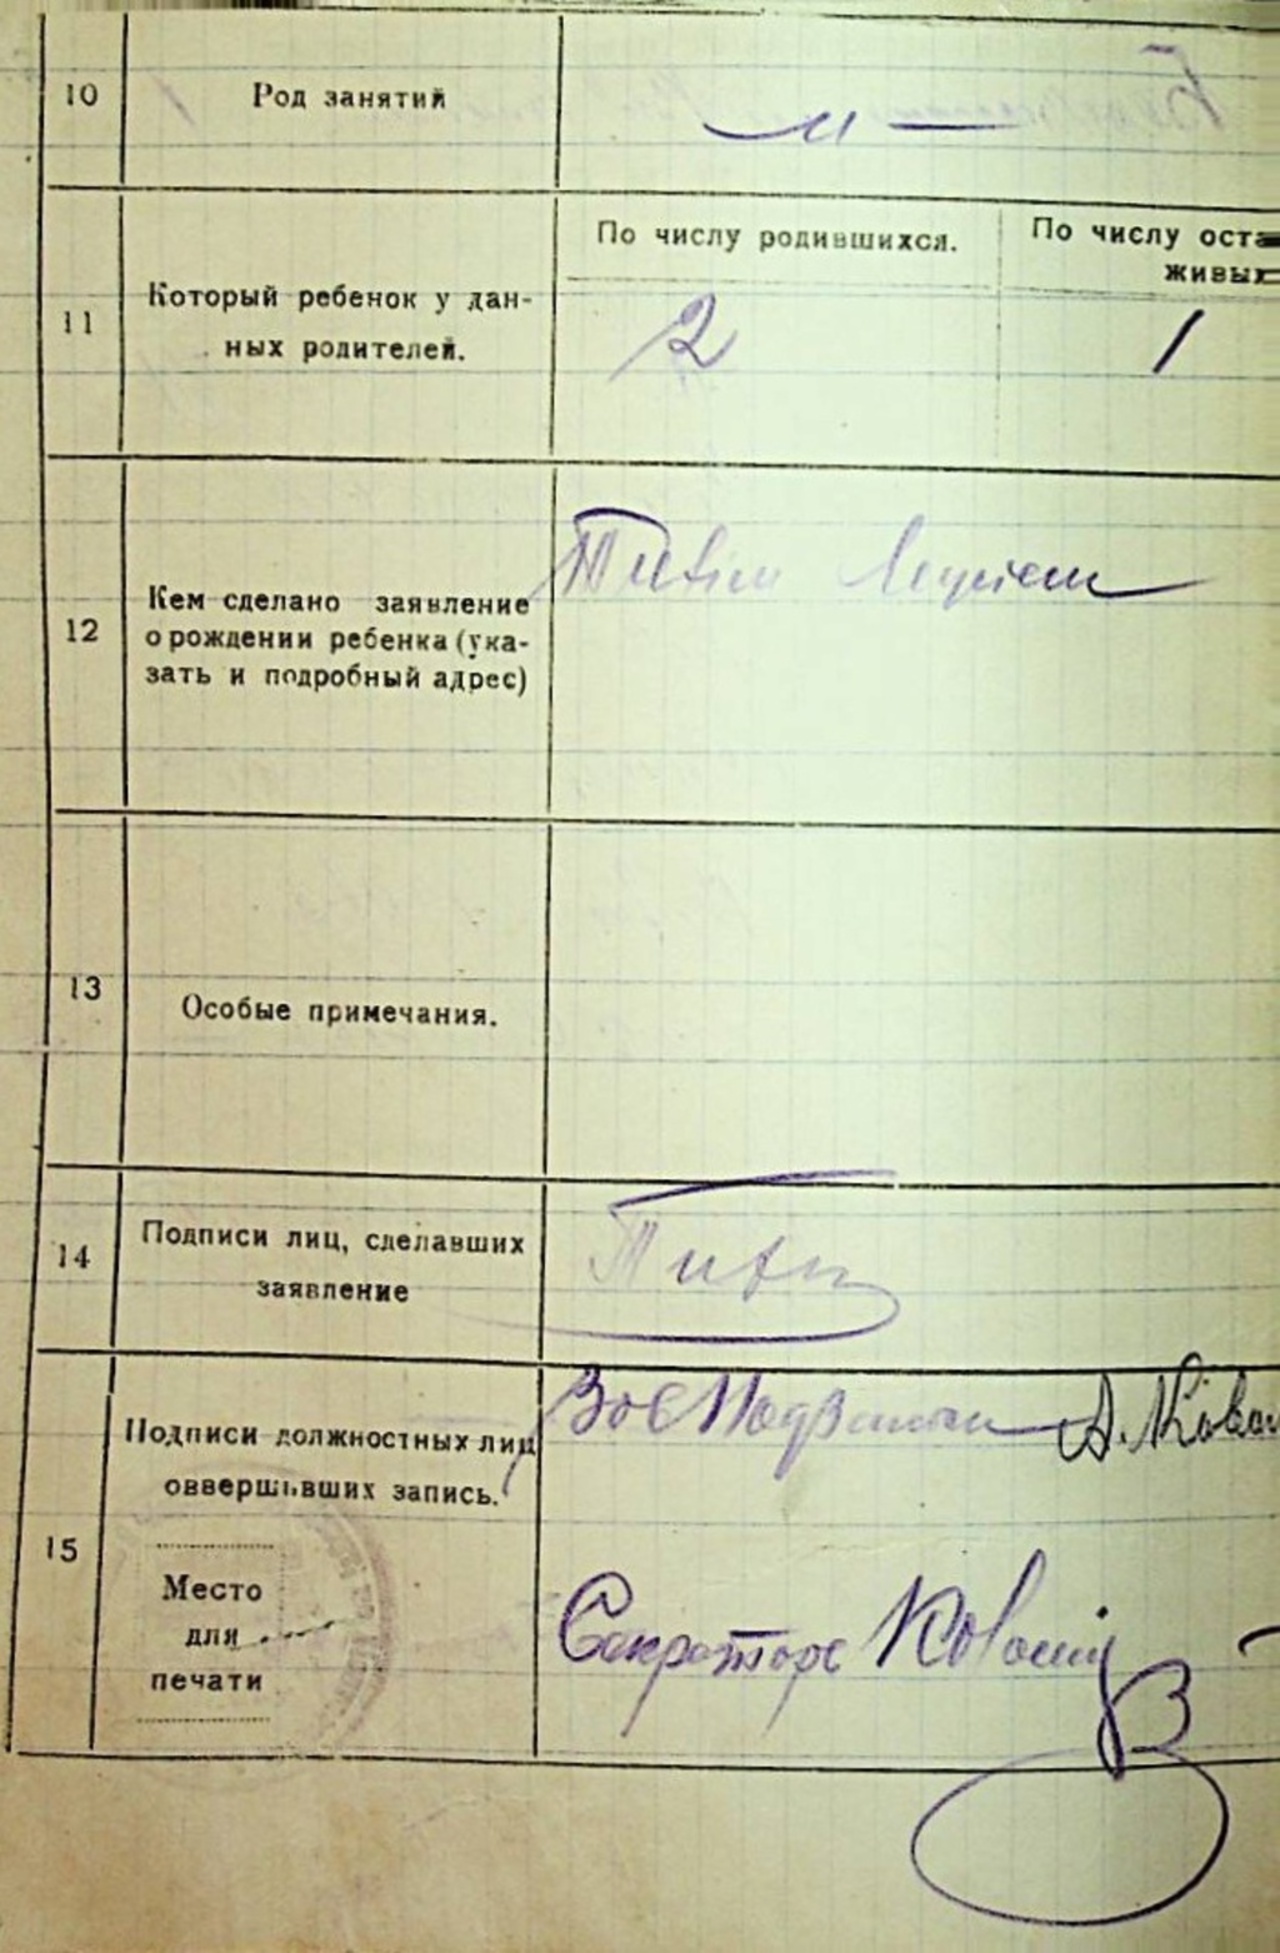 10
Род занятий
— " —
11
Который ребенок у дан-
ных родителей.
По числу родившихся.
По числу оста
живых
2
1
12
Кем сделано заявление
о рождении ребенка (ука-
зать и подробный адрес)
13
Особые примечания.
14
Подписи лиц, сделавших
заявление
15
Подписи должностных лиц
оввершивших запись.
А. Кова
Место
для
печати
Секреторь